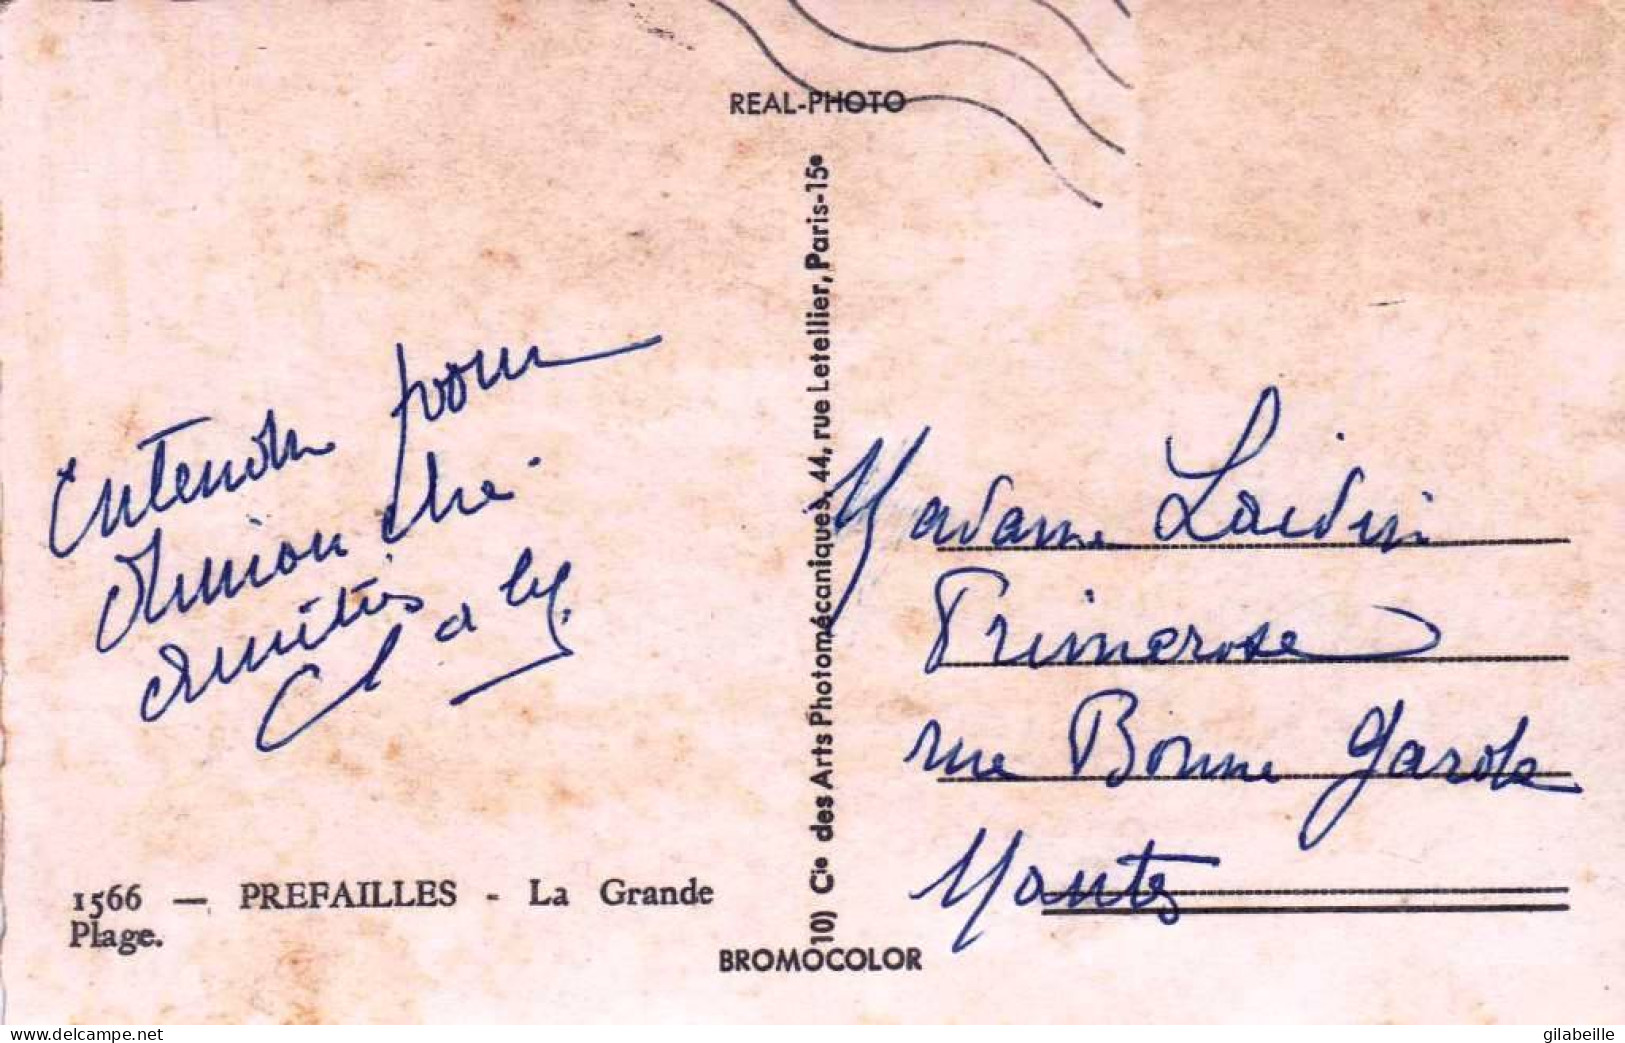 REAL-PHOTO
Entendu pour
réunion thé
amitiés
1566 — PREFAILLES - La Grande
Plage.
10) Cie des Arts Photomécaniques, 44, rue Letellier, Paris-15e
BROMOCOLOR
Madame
Primerose
rue Bonne Garde
Nantes
www.delcampe.net
gilabeille